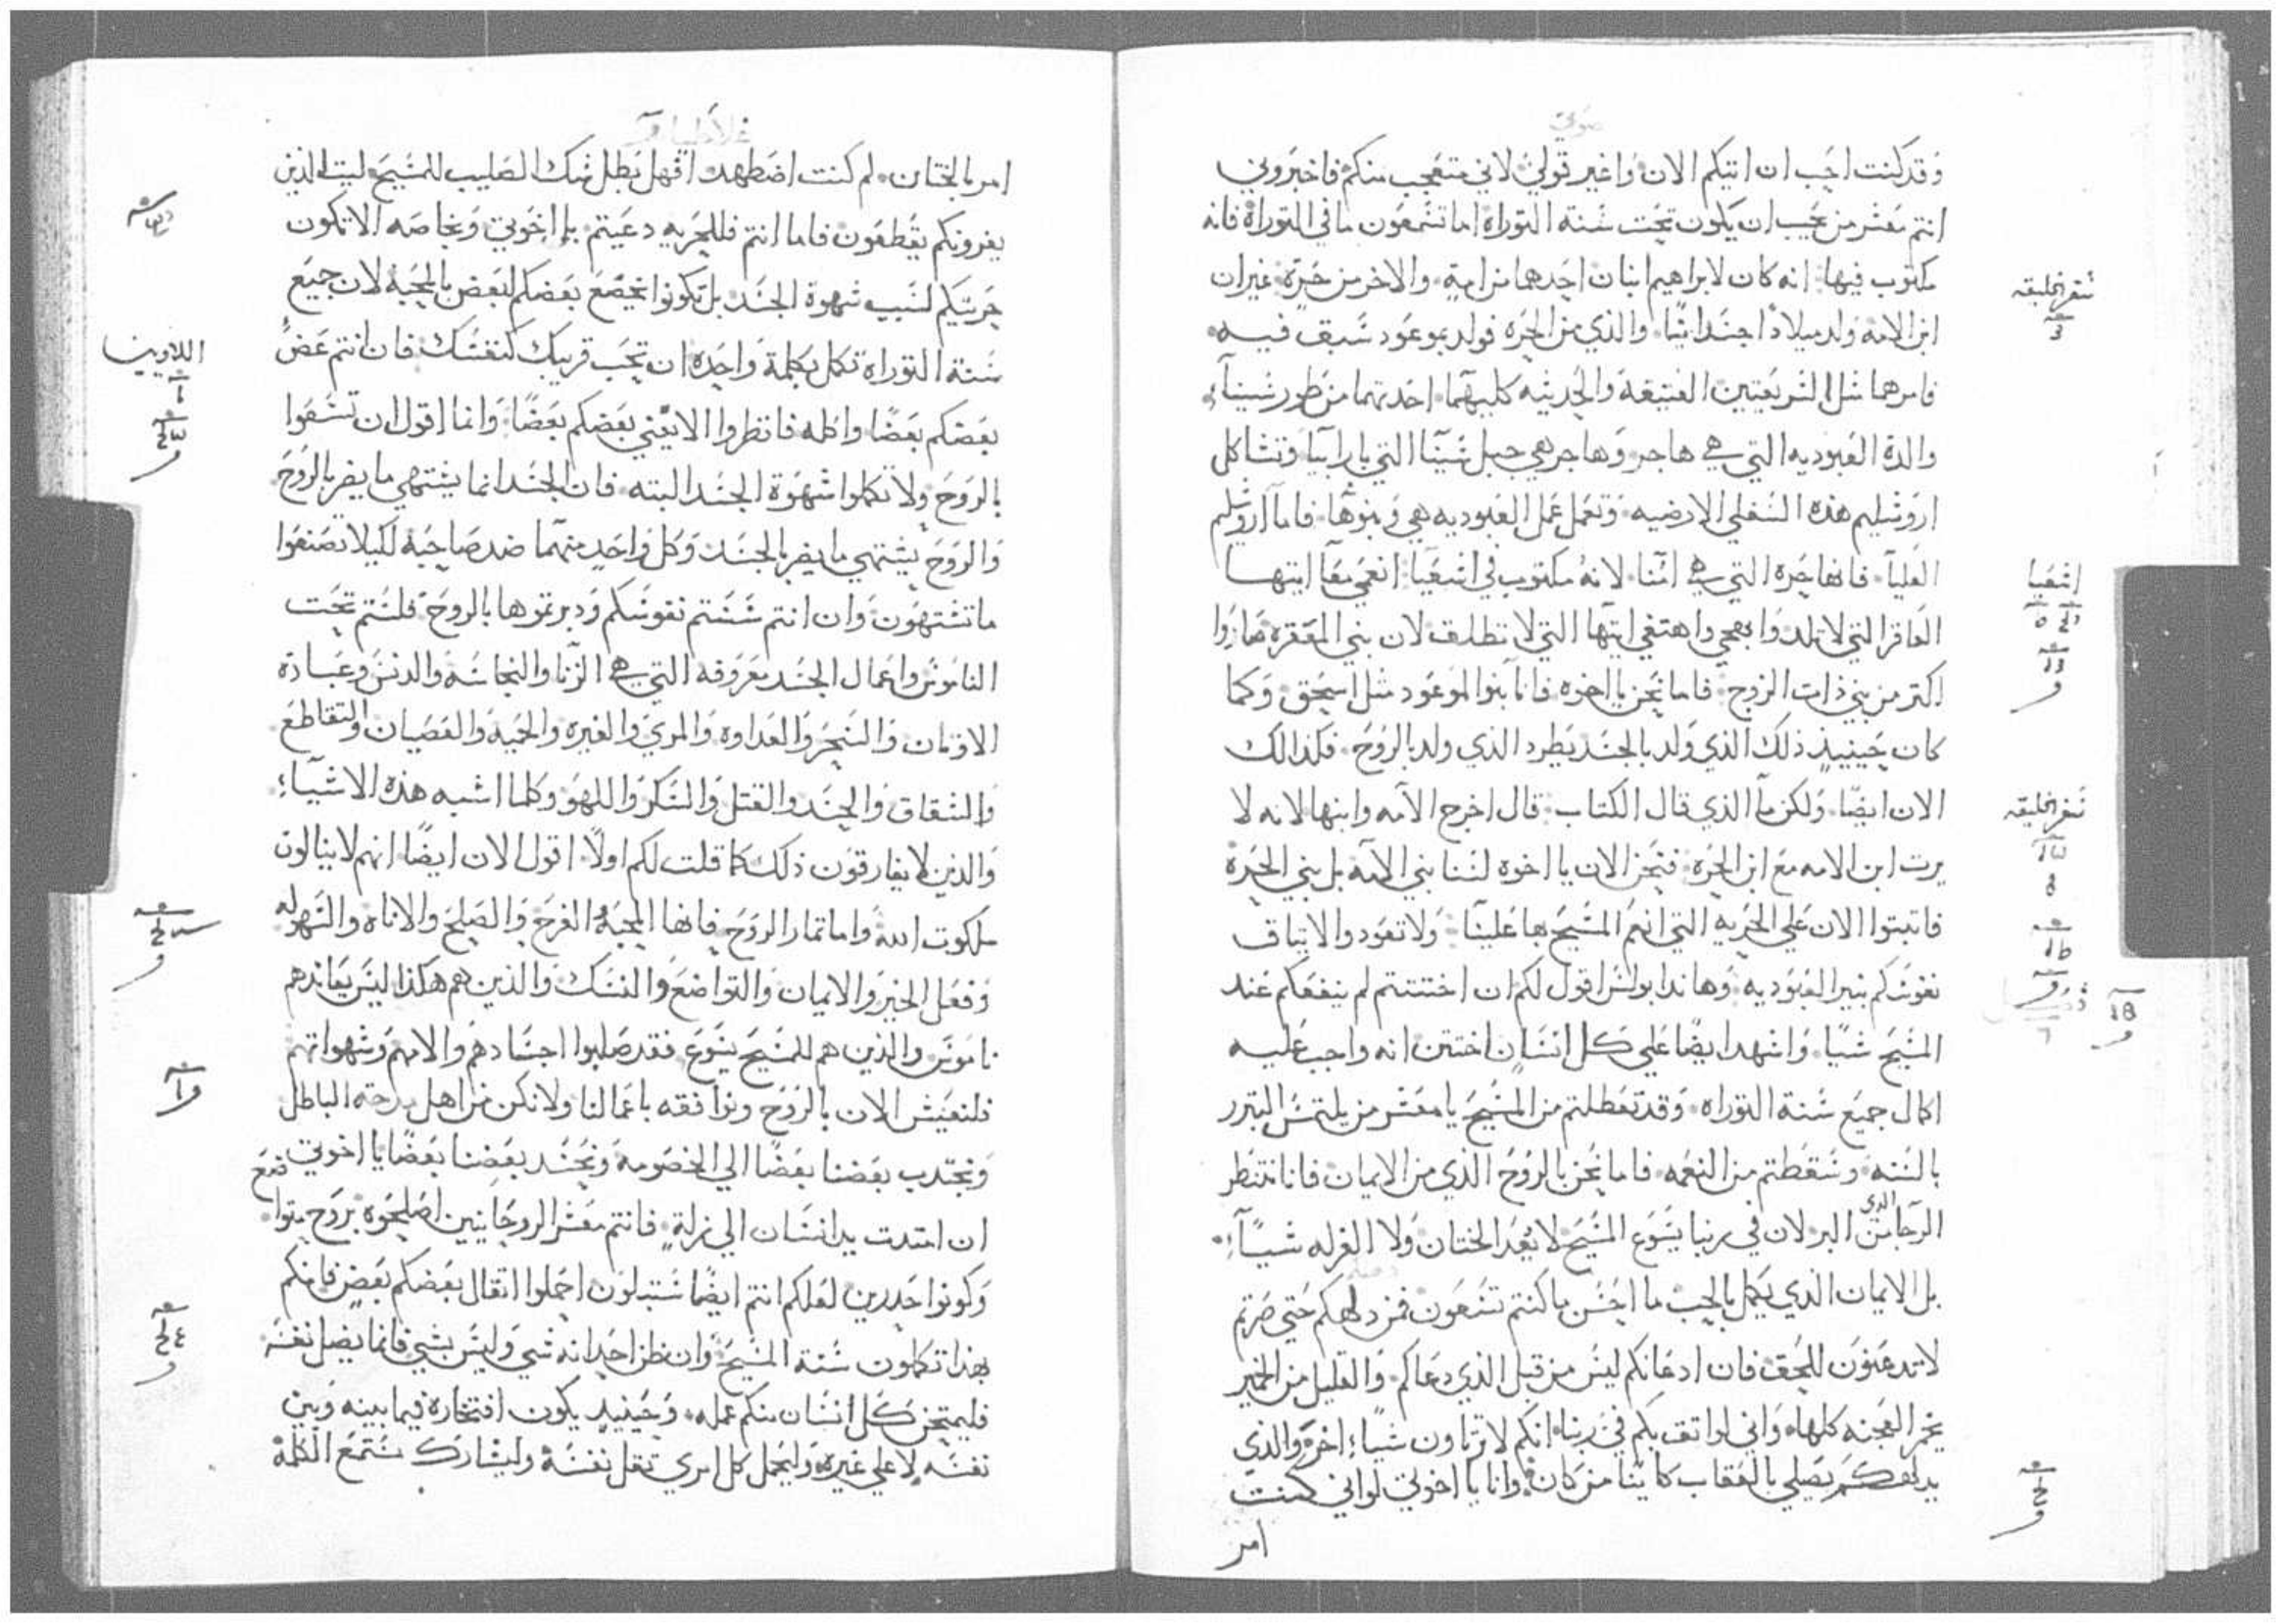 وقد كنت احب ان اتيكم الان واغير قولي لاني متعجب منكم فاخبروني
انتم معشر من يحب ان يكون تحت سنة التوراة اما تسمعون ما في التوراة فانه
مكتوب فيها انه كان لابراهيم ابنان احدهما من امة والاخر من حرة غير ان
ابن الامه ولد ميلادا جسدانيا والذي من الحره فولد بموعود سبق فيه
سفر الخليقه
فامرهما مثل الشريعتين العتيقة والحديثه كليهما احدتهما من طور سيناء
والدة العبوديه التي هي هاجر وهاجر هي جبل سينا التي بارابيا وتشاكل
اروشليم هذه السفلي الارضيه وتعمل عمل العبوديه هي وبنوها فاما اروشليم
العليا فانها حره التي هي امنا لانه مكتوب في اشعيا انعمي معا ايتها
اشعيا
العاقر التي لا تلد وابهجي واهتفي ايتها التي لا تطلق لان بني المقفره صاروا
اكتر من بني ذات الزوج فاما نحن يا اخوه فانا بنوا الموعود مثل اسحق وكما
كان حينيذ ذلك الذي ولد بالجسد يطرد الذي ولد بالروح فكذالك
الان ايضا ولكن ما الذي قال الكتاب قال اخرج الامه وابنها لانه لا
سفر الخليقه
يرت ابن الامه مع ابن الحره فنحن الان يا اخوه لسنا بني الامه بل بني الحره
فاتبتوا الان علي الحريه التي انعم المسيح بها علينا ولا تعودوا الايتاف
نفوسكم بنير العبوديه وهاندا بولس اقول لكم ان اختتنتم لم ينفعكم عند
المسيح شيا واشهد ايضا علي كل انسان اختتن انه واجب عليه
اكمال جميع سنة التوراه وقد تعطلتم من المسيح يا معشر من يلتمس التبرر
بالسنه وسقطتم من النعمه فاما نحن بالروح الذي من الايمان فانا ننتظر
الرجا الذي من البر لان في ربنا يسوع المسيح لا يعد الختان ولا الغرله شيا
بل الايمان الذي يكمل بالحب ما احسن ما كنتم تسعون فمن دلهكم حتي صرتم
لا تدعنون للحق فان ادعانكم ليس من قبل الذي دعاكم والقليل من الخمير
يخمر العجنه كلها واني لواتق بكم في ربنا انكم لا ترتاون شيا اخر والذي
يدلهكم يصلي بالعقاب كاينا من كان وانا يا اخوتي لو اني كنت
امر
امر بالختان لم كنت اضطهد افهل بطل شك الصليب للمسيح ليت الذين
يغرونكم يقطعون فاما انتم فللحريه دعيتم يا اخوتي وبخاصه الا تكون
حريتكم لسبب شهوة الجسد بل تكونوا يخضع بعضكم لبعض بالمحبة لان جميع
سنة التوراة تكمل بكلمة واحدة ان تحب قريبك كنفسك فان انتم عض
اللاويين
بعضكم بعضا واكله فانظروا الا يفني بعضكم بعضا وانما اقول ان تسعوا
بالروح ولا تكملوا شهوة الجسد البته فان الجسد انما يشتهي ما يضر بالروح
والروح يشتهي ما يضر بالجسد وكل واحد منهما ضد صاحبه لكيلا تصنعوا
ما تشتهون وان انتم سستم نفوسكم ودبرتموها بالروح فلستم تحت
الناموس واعمال الجسد معروفه التي هي الزنا والنجاسه والدنس وعبادة
الاوتان والسحر والعداوه والمري والغيره والحميه والعصيان والتقاطع
والشقاق والحسد والقتل والسكر واللهو وكلما اشبه هذه الاشياء
والذين لا يفارقون ذلك كما قلت لكم اولا اقول الان ايضا انهم لا ينالون
ملكوت الله واما تمار الروح فانها المحبة الفرح والصلح والاناه والسهوله
وفعل الخير والايمان والتواضع والنسك والذين هم هكذا ليس يعاندهم
ناموس والذين هم للمسيح يسوع فقد صلبوا اجسادهم والامهم وشهواتهم
فلنعيش الان بالروح ونوافقه باعمالنا ولا نكن من اهل مدحة الباطل
ويجتدب بعضنا بعضا الي الخصومه ويحسد بعضنا بعضا يا اخوتي
ان امتدت يد انسان الي زلة فانتم معشر الروحانيين اصلحوه بروح متواضع
وكونوا حدرين لعلكم انتم ايضا ستبتلون احملوا اتقال بعضكم بعض فانكم
بهذا تكملون سنة المسيح وان ظن احد انه شي وليس بشي فانما يضل نفسه
فليمتحن كل انسان منكم عمله وحينيد يكون افتخاره فيما بينه وبين
نفسه لا علي غيره وليحمل كل امري تقل نفسه وليشارك مستمع الكلمة